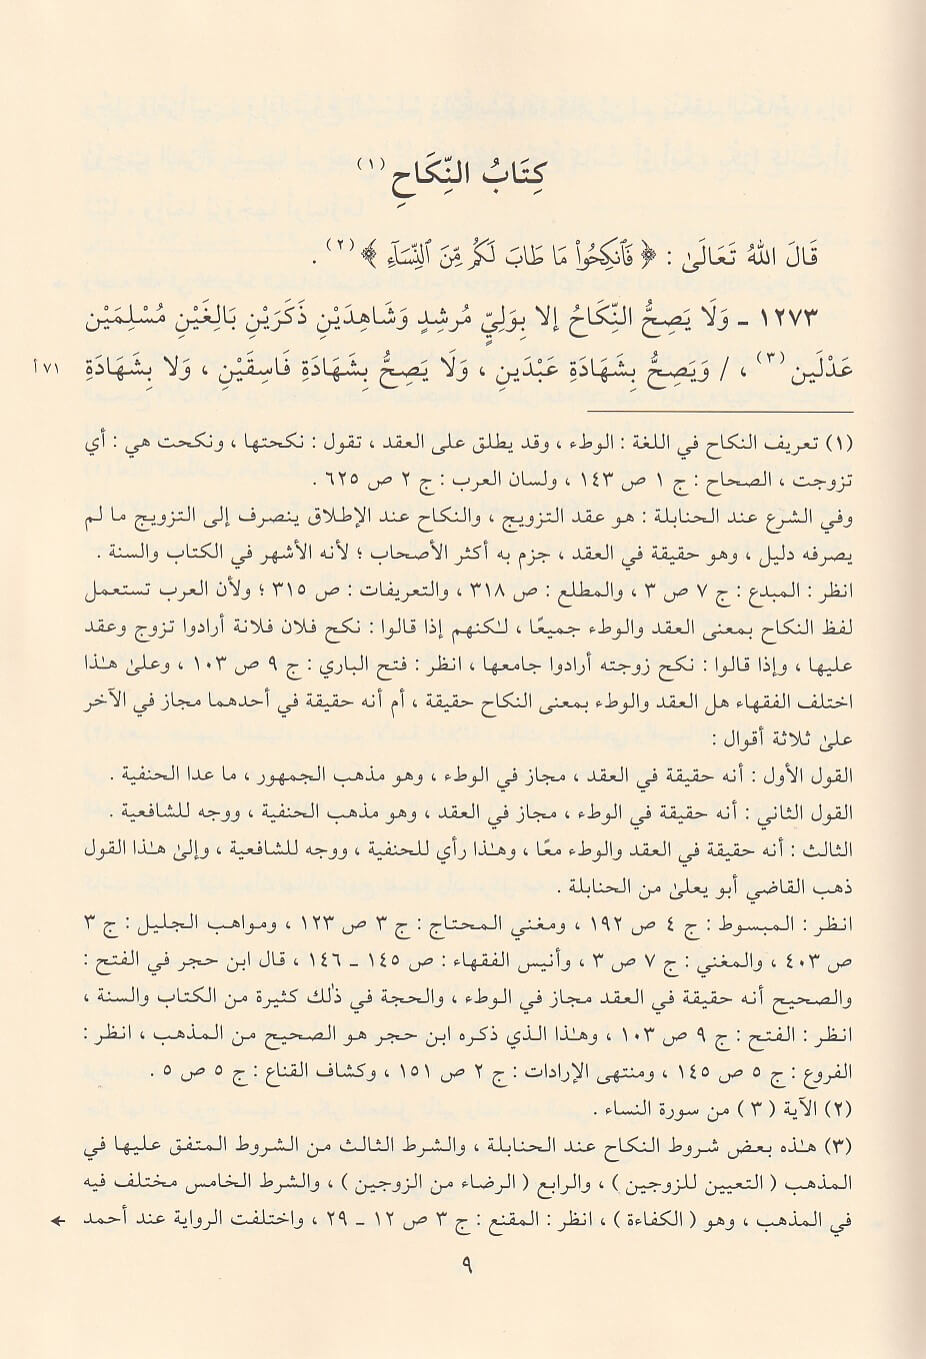 كِتَابُ النِّكَاحِ (١)
قَالَ اللهُ تَعَالَىٰ : ﴿ فَٱنكِحُوا۟ مَا طَابَ لَكُم مِّنَ ٱلنِّسَآءِ ﴾ (٢) .
١٢٧٣ ـ وَلَا يَصِحُّ النِّكَاحُ إلا بِوَلِيٍّ مُرشِدٍ وَشَاهِدَيْنِ ذَكَرَيْنِ بَالِغَيْنِ مُسْلِمَيْنِ
عَدْلَينِ (٣) ، / وَيَصِحُّ بِشَهَادَةِ عَبْدَينِ ، وَلَا يَصِحُّ بِشَهَادَةِ فَاسِقَيْنِ ، وَلا بِشَهَادَةِ
٧١ أ
(١) تعريف النكاح في اللغة : الوطء ، وقد يطلق على العقد ، تقول : نكحتها ، ونكحت هي : أي
تزوجت ، الصحاح : ج ١ ص ١٤٣ ، ولسان العرب : ج ٢ ص ٦٢٥ .
وفي الشرع عند الحنابلة : هو عقد التزويج ، والنكاح عند الإطلاق ينصرف إلى التزويج ما لم
يصرفه دليل ، وهو حقيقة في العقد ، جزم به أكثر الأصحاب ؛ لأنه الأشهر في الكتاب والسنة .
انظر : المبدع : ج ٧ ص ٣ ، والمطلع : ص ٣١٨ ، والتعريفات : ص ٣١٥ ؛ ولأن العرب تستعمل
لفظ النكاح بمعنى العقد والوطء جميعًا ، لـٰكنهم إذا قالوا : نكح فلان فلانة أرادوا تزوج وعقد
عليها ، وإذا قالوا : نكح زوجته أرادوا جامعها ، انظر : فتح الباري : ج ٩ ص ١٠٣ ، وعلىٰ هـٰذا
اختلف الفقهاء هل العقد والوطء بمعنى النكاح حقيقة ، أم أنه حقيقة في أحدهما مجاز في الآخر
علىٰ ثلاثة أقوال :
القول الأول : أنه حقيقة في العقد ، مجاز في الوطء ، وهو مذهب الجمهور ، ما عدا الحنفية .
القول الثاني : أنه حقيقة في الوطء ، مجاز في العقد ، وهو مذهب الحنفية ، ووجه للشافعية .
الثالث : أنه حقيقة في العقد والوطء معًا ، وهـٰذا رأي للحنفية ، ووجه للشافعية ، وإلىٰ هـٰذا القول
ذهب القاضي أبو يعلىٰ من الحنابلة .
انظر : المبسوط : ج ٤ ص ١٩٢ ، ومغني المحتاج : ج ٣ ص ١٢٣ ، ومواهب الجليل : ج ٣
ص ٤٠٣ ، والمغني : ج ٧ ص ٣ ، وأنيس الفقهاء : ص ١٤٥ ـ ١٤٦ ، قال ابن حجر في الفتح :
والصحيح أنه حقيقة في العقد مجاز في الوطء ، والحجة في ذٰلك كثيرة من الكتاب والسنة ،
انظر : الفتح : ج ٩ ص ١٠٣ ، وهـٰذا الذي ذكره ابن حجر هو الصحيح من المذهب ، انظر :
الفروع : ج ٥ ص ١٤٥ ، ومنتهى الإرادات : ج ٢ ص ١٥١ ، وكشاف القناع : ج ٥ ص ٥ .
(٢) الآية ( ٣ ) من سورة النساء .
(٣) هـٰذه بعض شروط النكاح عند الحنابلة ، والشرط الثالث من الشروط المتفق عليها في
المذهب ( التعيين للزوجين ) ، والرابع ( الرضاء من الزوجين ) ، والشرط الخامس مختلف فيه
في المذهب ، وهو ( الكفاءة ) ، انظر : المقنع : ج ٣ ص ١٢ ـ ٢٩ ، واختلفت الرواية عند أحمد ←
٩